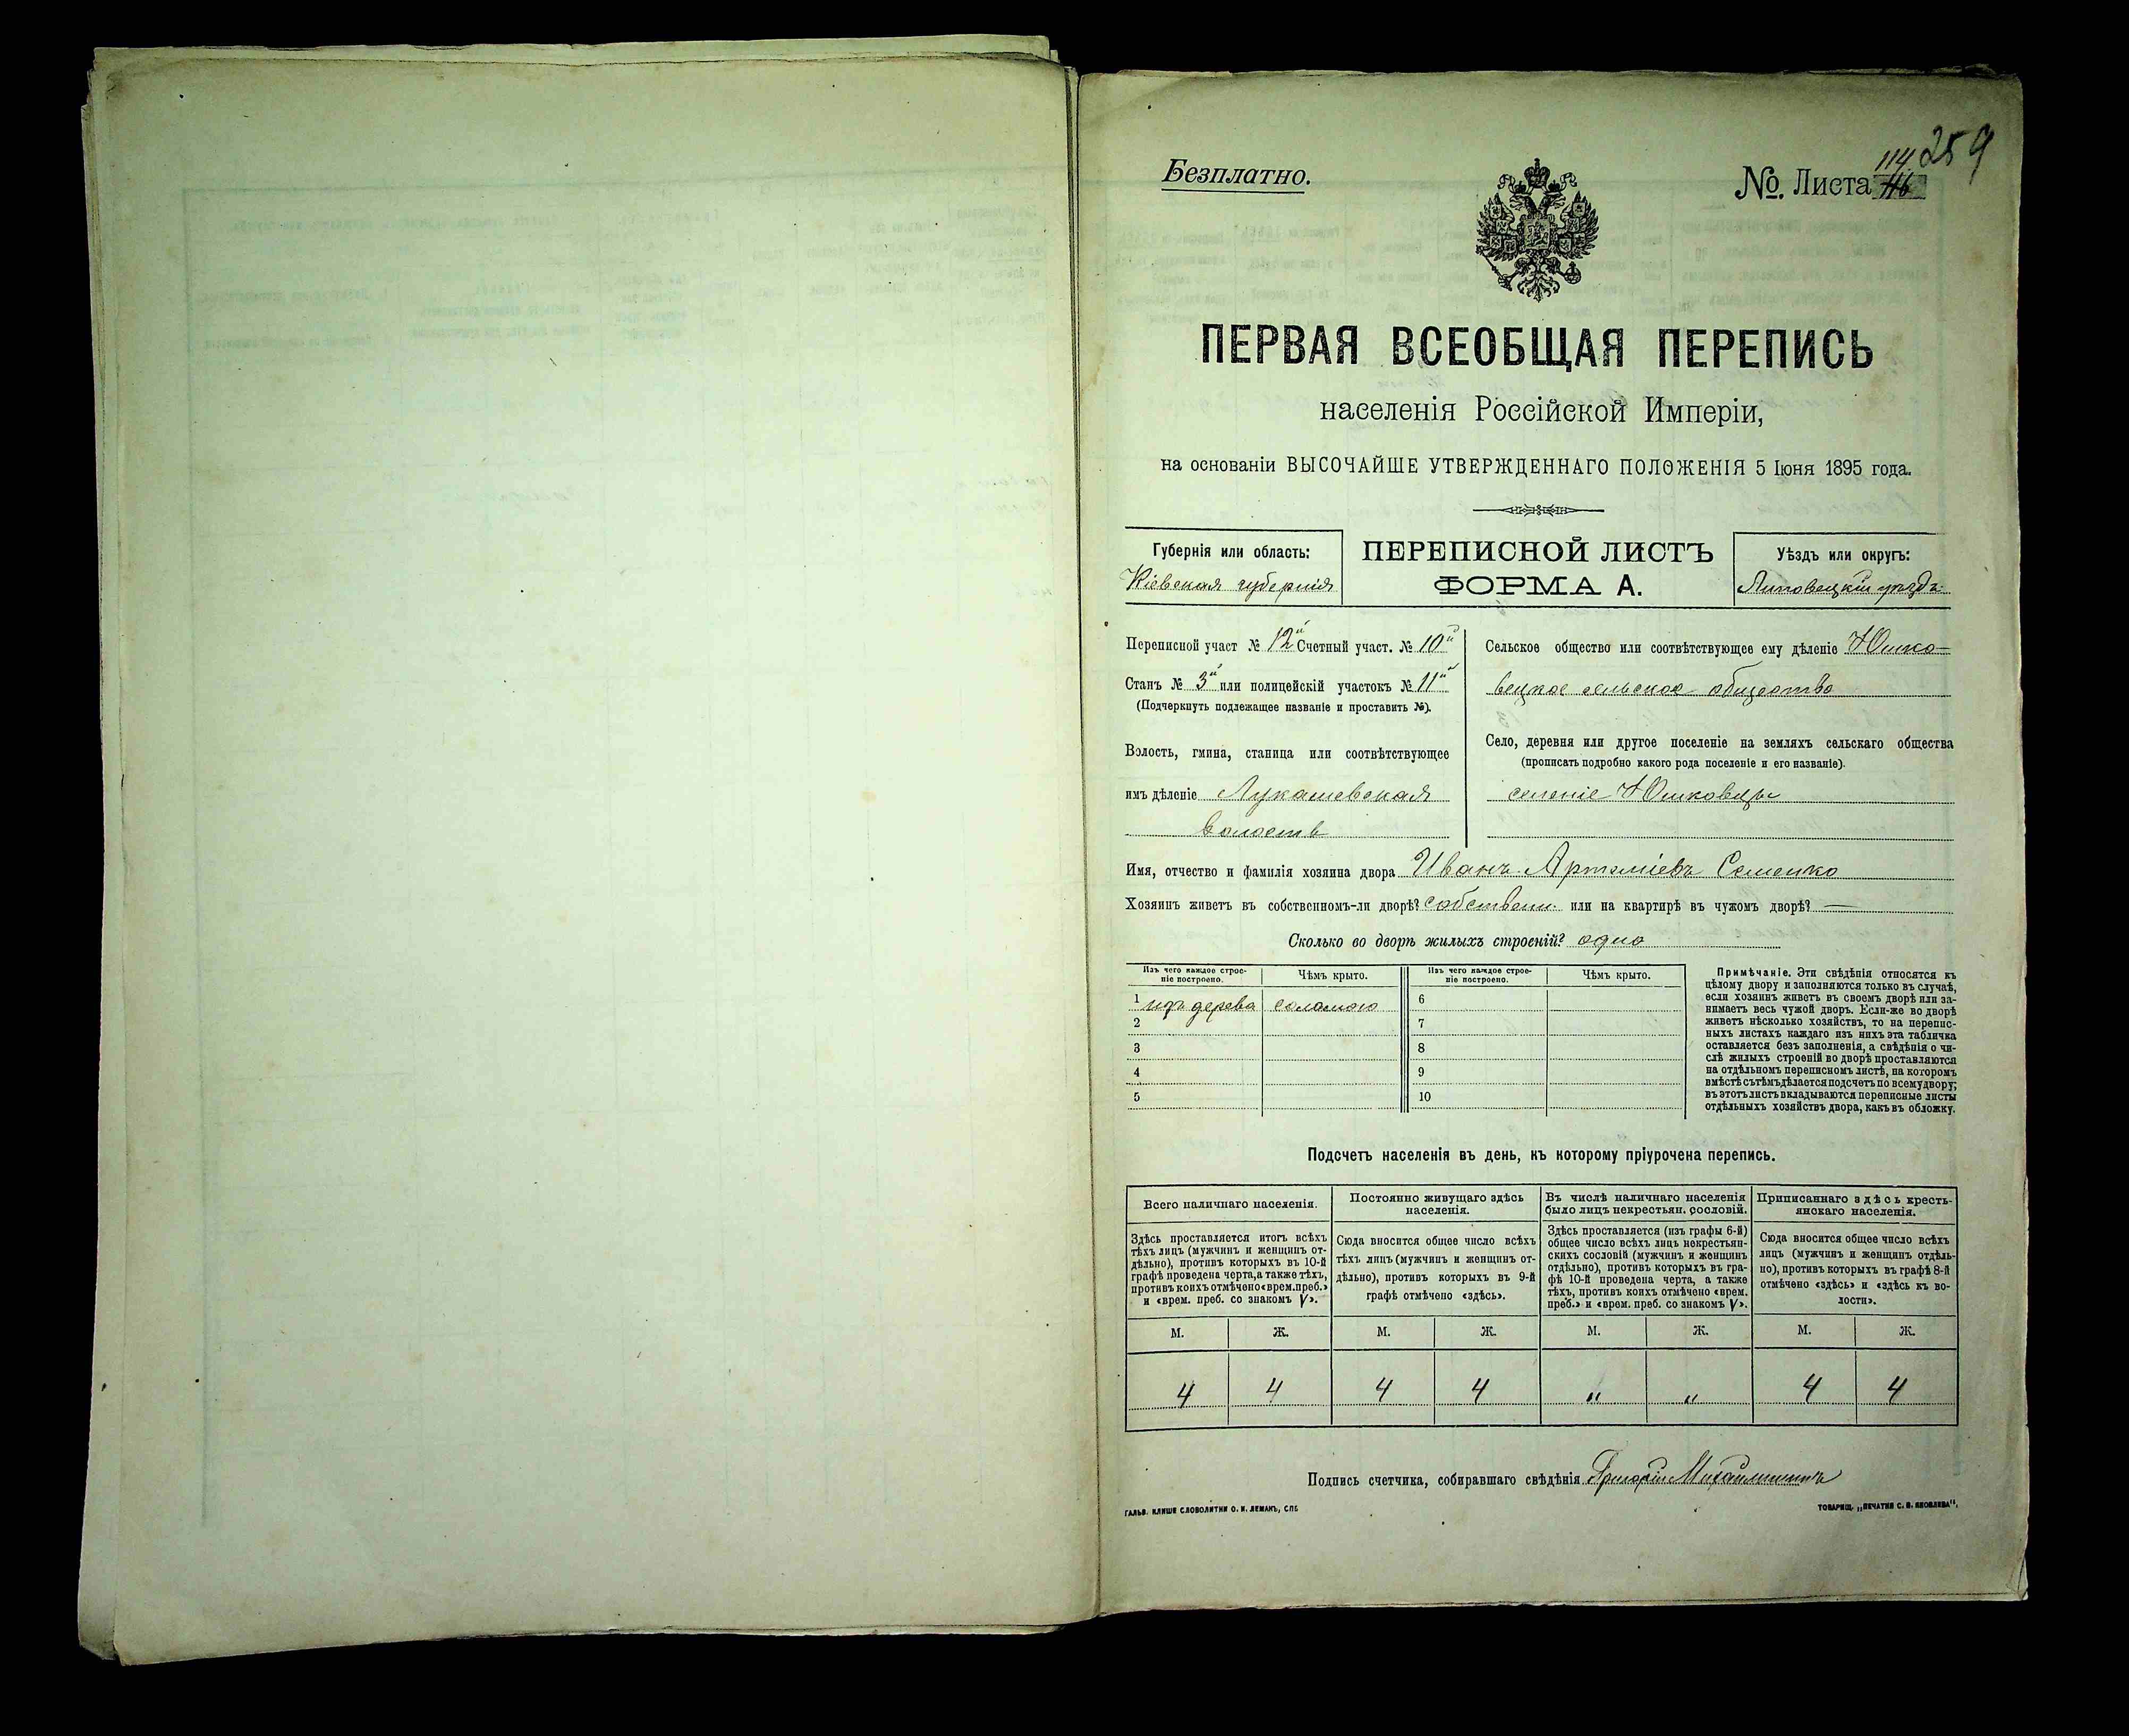 114 259
Безплатно.
№. Листа 116
ПЕРВАЯ ВСЕОБЩАЯ ПЕРЕПИСЬ
населенія Россійской Имперіи,
на основаніи ВЫСОЧАЙШЕ УТВЕРЖДЕННАГО ПОЛОЖЕНІЯ 5 Іюня 1895 года.
Губернія или область:
Кіевская губернія
ПЕРЕПИСНОЙ ЛИСТЪ
ФОРМА А.
Уѣздъ или округъ:
Липовецкій уѣздъ
Переписной участ № 12й Счетный участ. № 10й
Станъ № 3й или полицейскій участокъ № 11й
(Подчеркнуть подлежащее названіе и проставить №).
Волость, гмина, станица или соотвѣтствующее
имъ дѣленіе Лукашевская
волость
Сельское общество или соотвѣтствующее ему дѣленіе Юшко-
вецкое сельское общество
Село, деревня или другое поселеніе на земляхъ сельскаго общества
(прописать подробно какого рода поселеніе и его названіе).
селеніе Юшковцы
Имя, отчество и фамилія хозяина двора Иванъ Артеміевъ Семенко
Хозяинъ живетъ въ собственномъ-ли дворѣ? собствен. или на квартирѣ въ чужомъ дворѣ? —
Сколько во дворѣ жилыхъ строеній? одно
Изъ чего каждое строе-
ніе построено.
Чѣмъ крыто.
Изъ чего каждое строе-
ніе построено.
Чѣмъ крыто.
1 изъ дерева соломою 6
2 7
3 8
4 9
5 10
Примѣчаніе. Эти свѣдѣнія относятся къ
цѣлому двору и заполняются только въ случаѣ,
если хозяинъ живетъ въ своемъ дворѣ или за-
нимаетъ весь чужой дворъ. Если-же во дворѣ
живетъ нѣсколько хозяйствъ, то на перепис-
ныхъ листахъ каждаго изъ нихъ эта табличка
оставляется безъ заполненія, а свѣдѣнія о чи-
слѣ жилыхъ строеній во дворѣ проставляются
на отдѣльномъ переписномъ листѣ, на которомъ
вмѣстѣ съ тѣмъ дѣлается подсчетъ по всему двору;
въ этотъ листъ вкладываются переписные листы
отдѣльныхъ хозяйствъ двора, какъ въ обложку.
Подсчетъ населенія въ день, къ которому пріурочена перепись.
Всего наличнаго населенія.
Здѣсь проставляется итогъ всѣхъ
тѣхъ лицъ (мужчинъ и женщинъ от-
дѣльно), противъ которыхъ въ 10-й
графѣ проведена черта, а также тѣхъ,
противъ коихъ отмѣчено «врем. преб.»
и «врем. преб. со знакомъ V».
Постоянно живущаго здѣсь
населенія.
Сюда вносится общее число всѣхъ
тѣхъ лицъ (мужчинъ и женщинъ от-
дѣльно), противъ которыхъ въ 9-й
графѣ отмѣчено «здѣсь».
Въ числѣ наличнаго населенія
было лицъ некрестьян. сословій.
Здѣсь проставляется (изъ графы 6-й)
общее число всѣхъ лицъ некрестьян-
скихъ сословій (мужчинъ и женщинъ
отдѣльно), противъ которыхъ въ гра-
фѣ 10-й проведена черта, а также
тѣхъ, противъ коихъ отмѣчено «врем.
преб.» и «врем. преб. со знакомъ V».
Приписаннаго здѣсь кресть-
янскаго населенія.
Сюда вносится общее число всѣхъ
лицъ (мужчинъ и женщинъ отдѣль-
но), противъ которыхъ въ графѣ 8-й
отмѣчено «здѣсь» и «здѣсь къ во-
лости».
М. Ж. М. Ж. М. Ж. М. Ж.
4 4 4 4 „ „ 4 4
Подпись счетчика, собиравшаго свѣдѣнія Григорій
ГАЛЬВ. КЛИШЕ СЛОВОЛИТНИ О. И. ЛЕМАНЪ, СПБ
ТОВАРИЩ. „ПЕЧАТНЯ С. П. ЯКОВЛЕВА“.